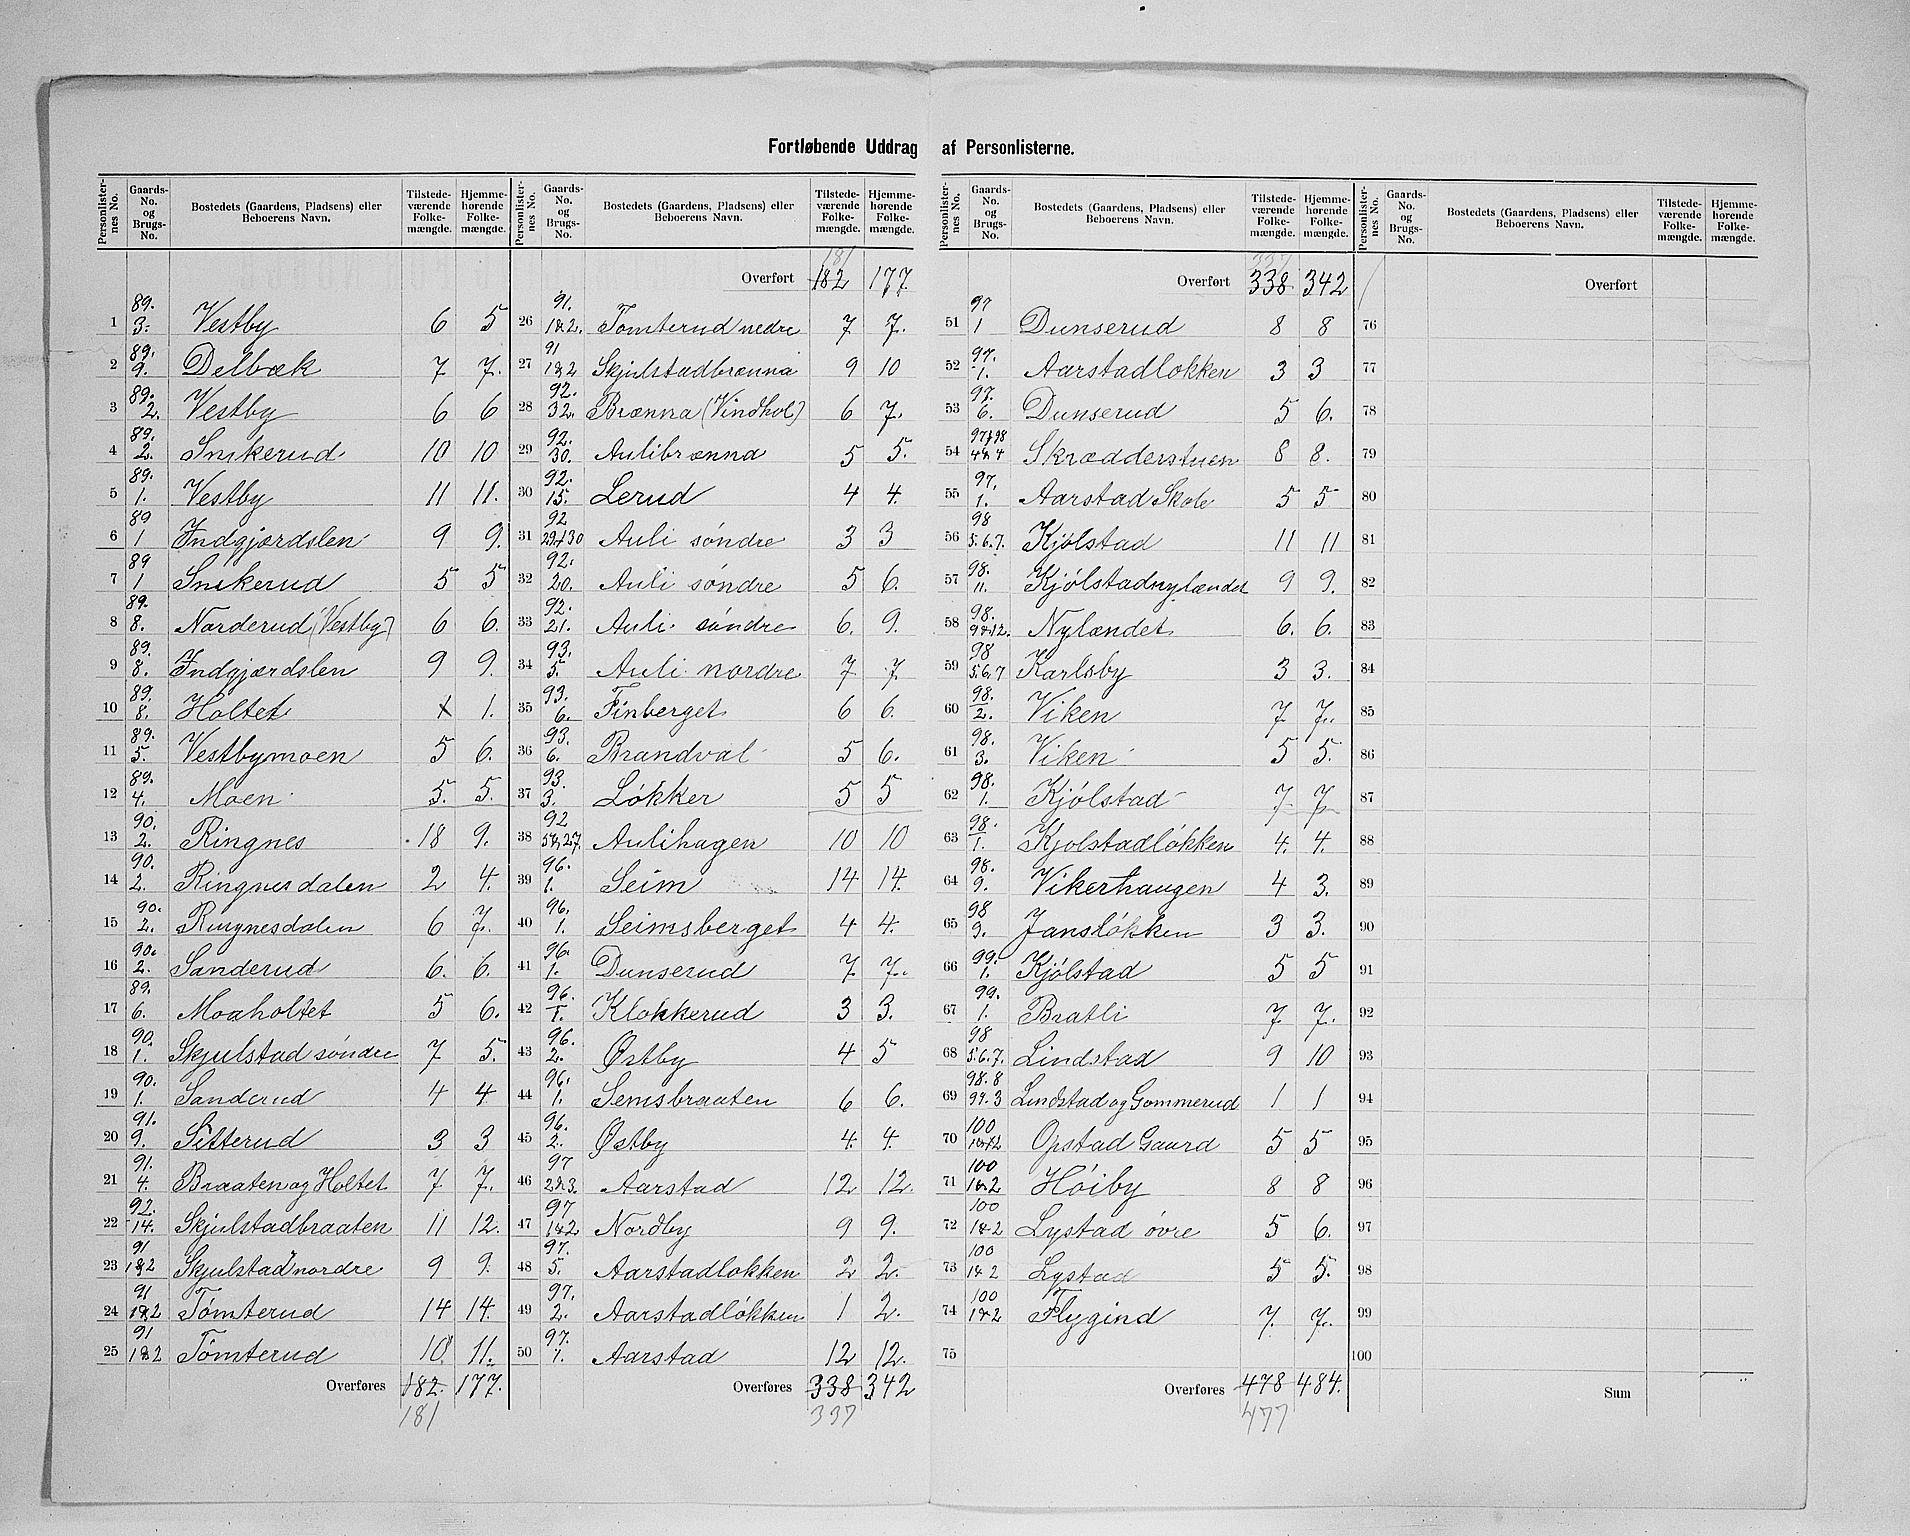 Fortløbende Uddrag af Personlisterne.
Personlister-nes No. | Gaards-No. og Brugs-No. | Bostedets (Gaardens, Pladsens) eller Beboerens Navn. | Tilstede-værende Folke-mængde. | Hjemme-hørende Folke-mængde.
1 | 89. 3. | Vestby | 6 | 5
2 | 89. 9. | Delbæk | 7 | 7.
3 | 89. 2. | Vestby | 6 | 6
4 | 89. 2. | Snikerud | 10 | 10
5 | 89. 1. | Vestby | 11 | 11.
6 | 89 1 | Indgjærdslen | 9 | 9.
7 | 89 1 | Snikerud | 5 | 5
8 | 89. 8. | Narderud (Vestby) | 6 | 6.
9 | 89. 8. | Indgjærdslen | 9 | 9.
10 | 89. 8. | Holtet | x | 1.
11 | 89. 5. | Vestbymoen | 5 | 6.
12 | 89. 4. | Moen | 5. | 5.
13 | 90. 2. | Ringnes | 18 | 9.
14 | 90. 2. | Ringnesdalen | 2 | 4.
15 | 90. 2. | Ringnesdalen | 6 | 7.
16 | 90. 2. | Sanderud | 6. | 6.
17 | 89. 6. | Moaholtet | 5 | 6.
18 | 90. 1. | Skjulstad søndre | 7 | 5.
19 | 90. 1. | Sanderud | 4 | 4
20 | 91. 9. | Sitterud | 3 | 3
21 | 91. 4. | Braaten og Holtet | 7 | 7.
22 | 92. 14. | Skjulstadbraaten | 11 | 12.
23 | 91 1&2 | Skjulstad nordre | 9 | 9.
24 | 91 1&2 | Tømterud | 14 | 14.
25 | 91 1&2 | Tømterud | 10. | 11.
Overføres | 182. | 177.
181
Personlister-nes No. | Gaards-No. og Brugs-No. | Bostedets (Gaardens, Pladsens) eller Beboerens Navn. | Tilstede-værende Folke-mængde. | Hjemme-hørende Folke-mængde.
181
Overført | 182 | 177
26 | 91. 1&2. | Tømterud nedre | 7 | 7.
27 | 91 1&2 | Skjulstadbrænna | 9 | 10
28 | 92. 32. | Brænna (Vindhol) | 6 | 7.
29 | 92. 30. | Aulibrænna | 5 | 5.
30 | 92. 15. | Lerud | 4 | 4.
31 | 92 29&30 | Auli søndre | 3 | 3
32 | 92. 20. | Auli søndre | 5 | 6.
33 | 92. 21. | Auli søndre | 6. | 9.
34 | 93. 5. | Auli nordre | 7 | 7.
35 | 93. 6. | Finberget | 6 | 6.
36 | 93. 6. | Brandval | 5 | 6.
37 | 93. 3. | Løkker | 5 | 5
38 | 92 5&27. | Aulihagen | 10 | 10
39 | 96. 1. | Seim | 14 | 14.
40 | 96. 1. | Seimsberget | 4 | 4.
41 | 96. 1. | Dunserud | 7 | 7.
42 | 96. 1. | Klokkerud | 3 | 3.
43 | 96. 2. | Østby | 4 | 5
44 | 96. 1. | Semsbraaten | 6 | 6.
45 | 96. 2. | Østby | 4. | 4.
46 | 97 2&3. | Aarstad | 12 | 12.
47 | 97 1&2 | Nordby | 9 | 9.
48 | 97. 5. | Aarstadløkken | 2 | 2.
49 | 97. 2. | Aarstadløkken | 1 | 2.
50 | 97. 1. | Aarstad | 12 | 12.
Overføres | 338 | 342
337
Personlister-nes No. | Gaards-No. og Brugs-No. | Bostedets (Gaardens, Pladsens) eller Beboerens Navn. | Tilstede-værende Folke-mængde. | Hjemme-hørende Folke-mængde.
337
Overført | 338 | 342
51 | 97 1 | Dunserud | 8 | 8
52 | 97. 1. | Aarstadløkken | 3 | 3
53 | 97. 6. | Dunserud | 5 | 6.
54 | 97&98 4&4 | Skrædderstuen | 8 | 8.
55 | 97. 1. | Aarstad Skole | 5 | 5
56 | 98 5.6.7. | Kjølstad | 11 | 11
57 | 98. 11. | Kjølstadnylændet | 9 | 9.
58 | 98. 9&12. | Nylændet | 6. | 6.
59 | 98 5.6.7 | Karlsby | 3 | 3.
60 | 98. 2. | Viken | 7 | 7.
61 | 98. 3. | Viken | 5 | 5.
62 | 98. 1. | Kjølstad | 7 | 7
63 | 98. 1. | Kjølstadløkken | 4. | 4.
64 | 98. 9. | Vikerhaugen | 4 | 3.
65 | 98 9. | Jansløkken | 3 | 3.
66 | 99. 1. | Kjølstad | 5 | 5
67 | 99. 1. | Bratli | 7 | 7.
68 | 98 5.6.7. | Lindstad | 9 | 10
69 | 98.8 99.3 | Lindstad og Gommerud | 1 | 1
70 | 100 1&2 | Opstad Gaard | 5 | 5
71 | 100 1&2 | Høiby | 8 | 8
72 | 100 1&2 | Lystad øvre | 5 | 6.
73 | 100 1&2 | Lystad | 5 | 5.
74 | 100 1&2 | Flygind | 7. | 7.
75
Overføres | 478 | 484.
477
Personlister-nes No. | Gaards-No. og Brugs-No. | Bostedets (Gaardens, Pladsens) eller Beboerens Navn. | Tilstede-værende Folke-mængde. | Hjemme-hørende Folke-mængde.
Overført
76
77
78
79
80
81
82
83
84
85
86
87
88
89
90
91
92
93
94
95
96
97
98
99
100
Sum